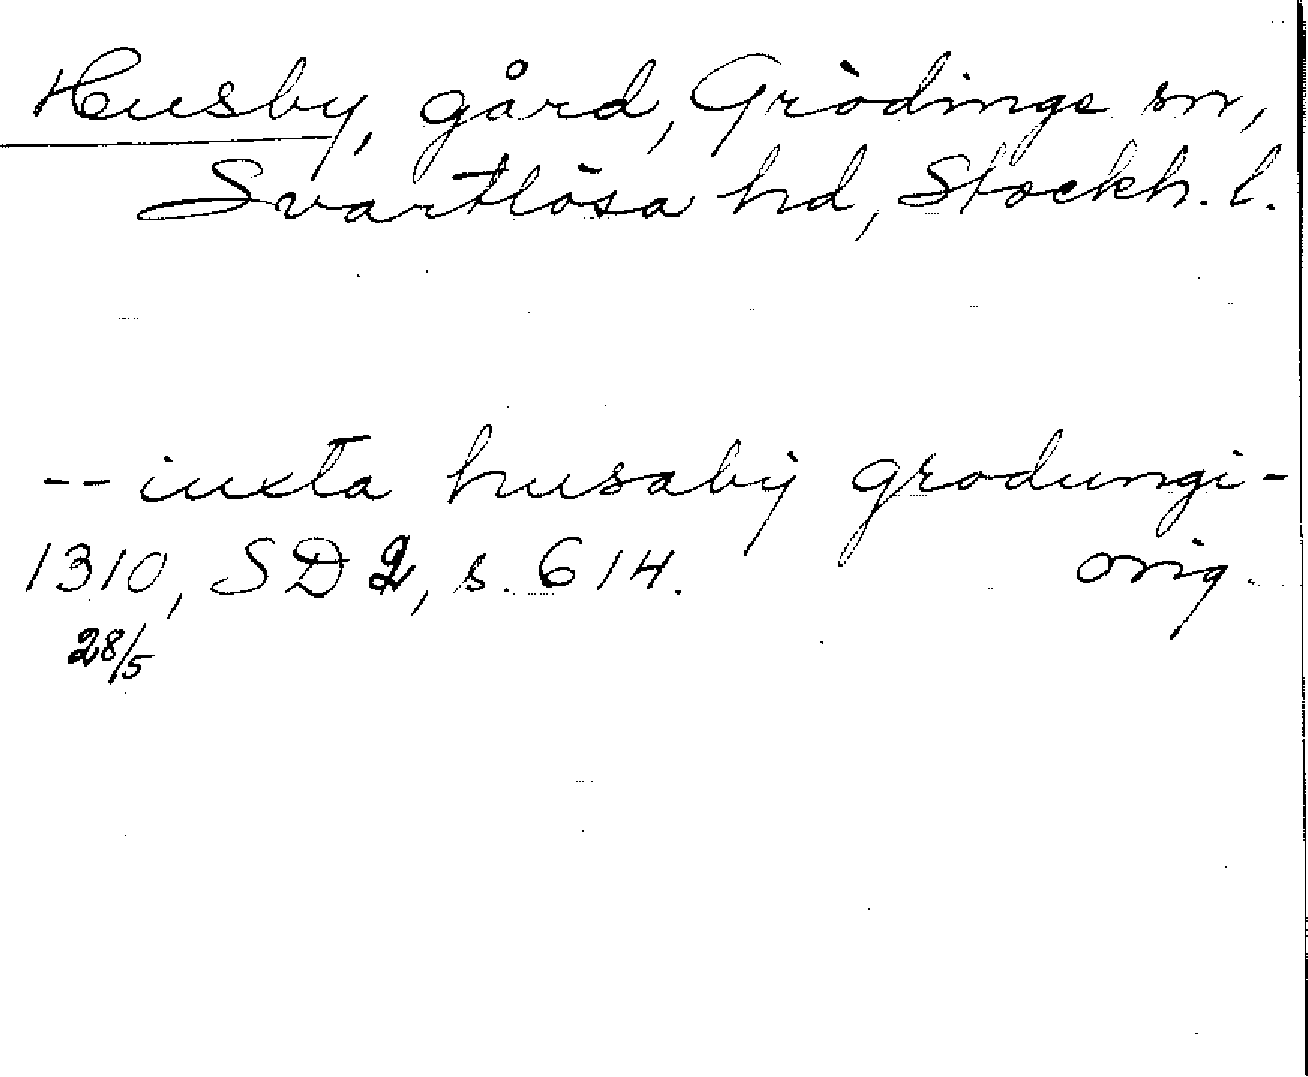 Husby, gård, Grödinge sn,
Svartlösa hd, Stockh. l.
-- iuxta husabÿ grodungi -
1310, SD 2, s. 614. orig.
28/5